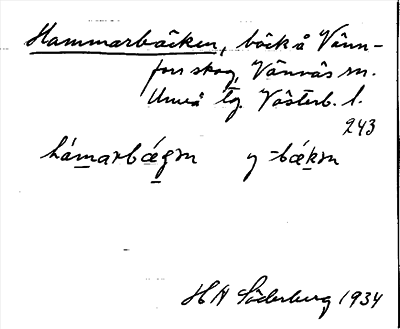 Hammarbäcken, bäck å Vänn-
fors skog, Vännäs sn.
Umeå tg. Västerb. l.
243
hámarbǽgm y -bǽkm
HA Söderberg 1934